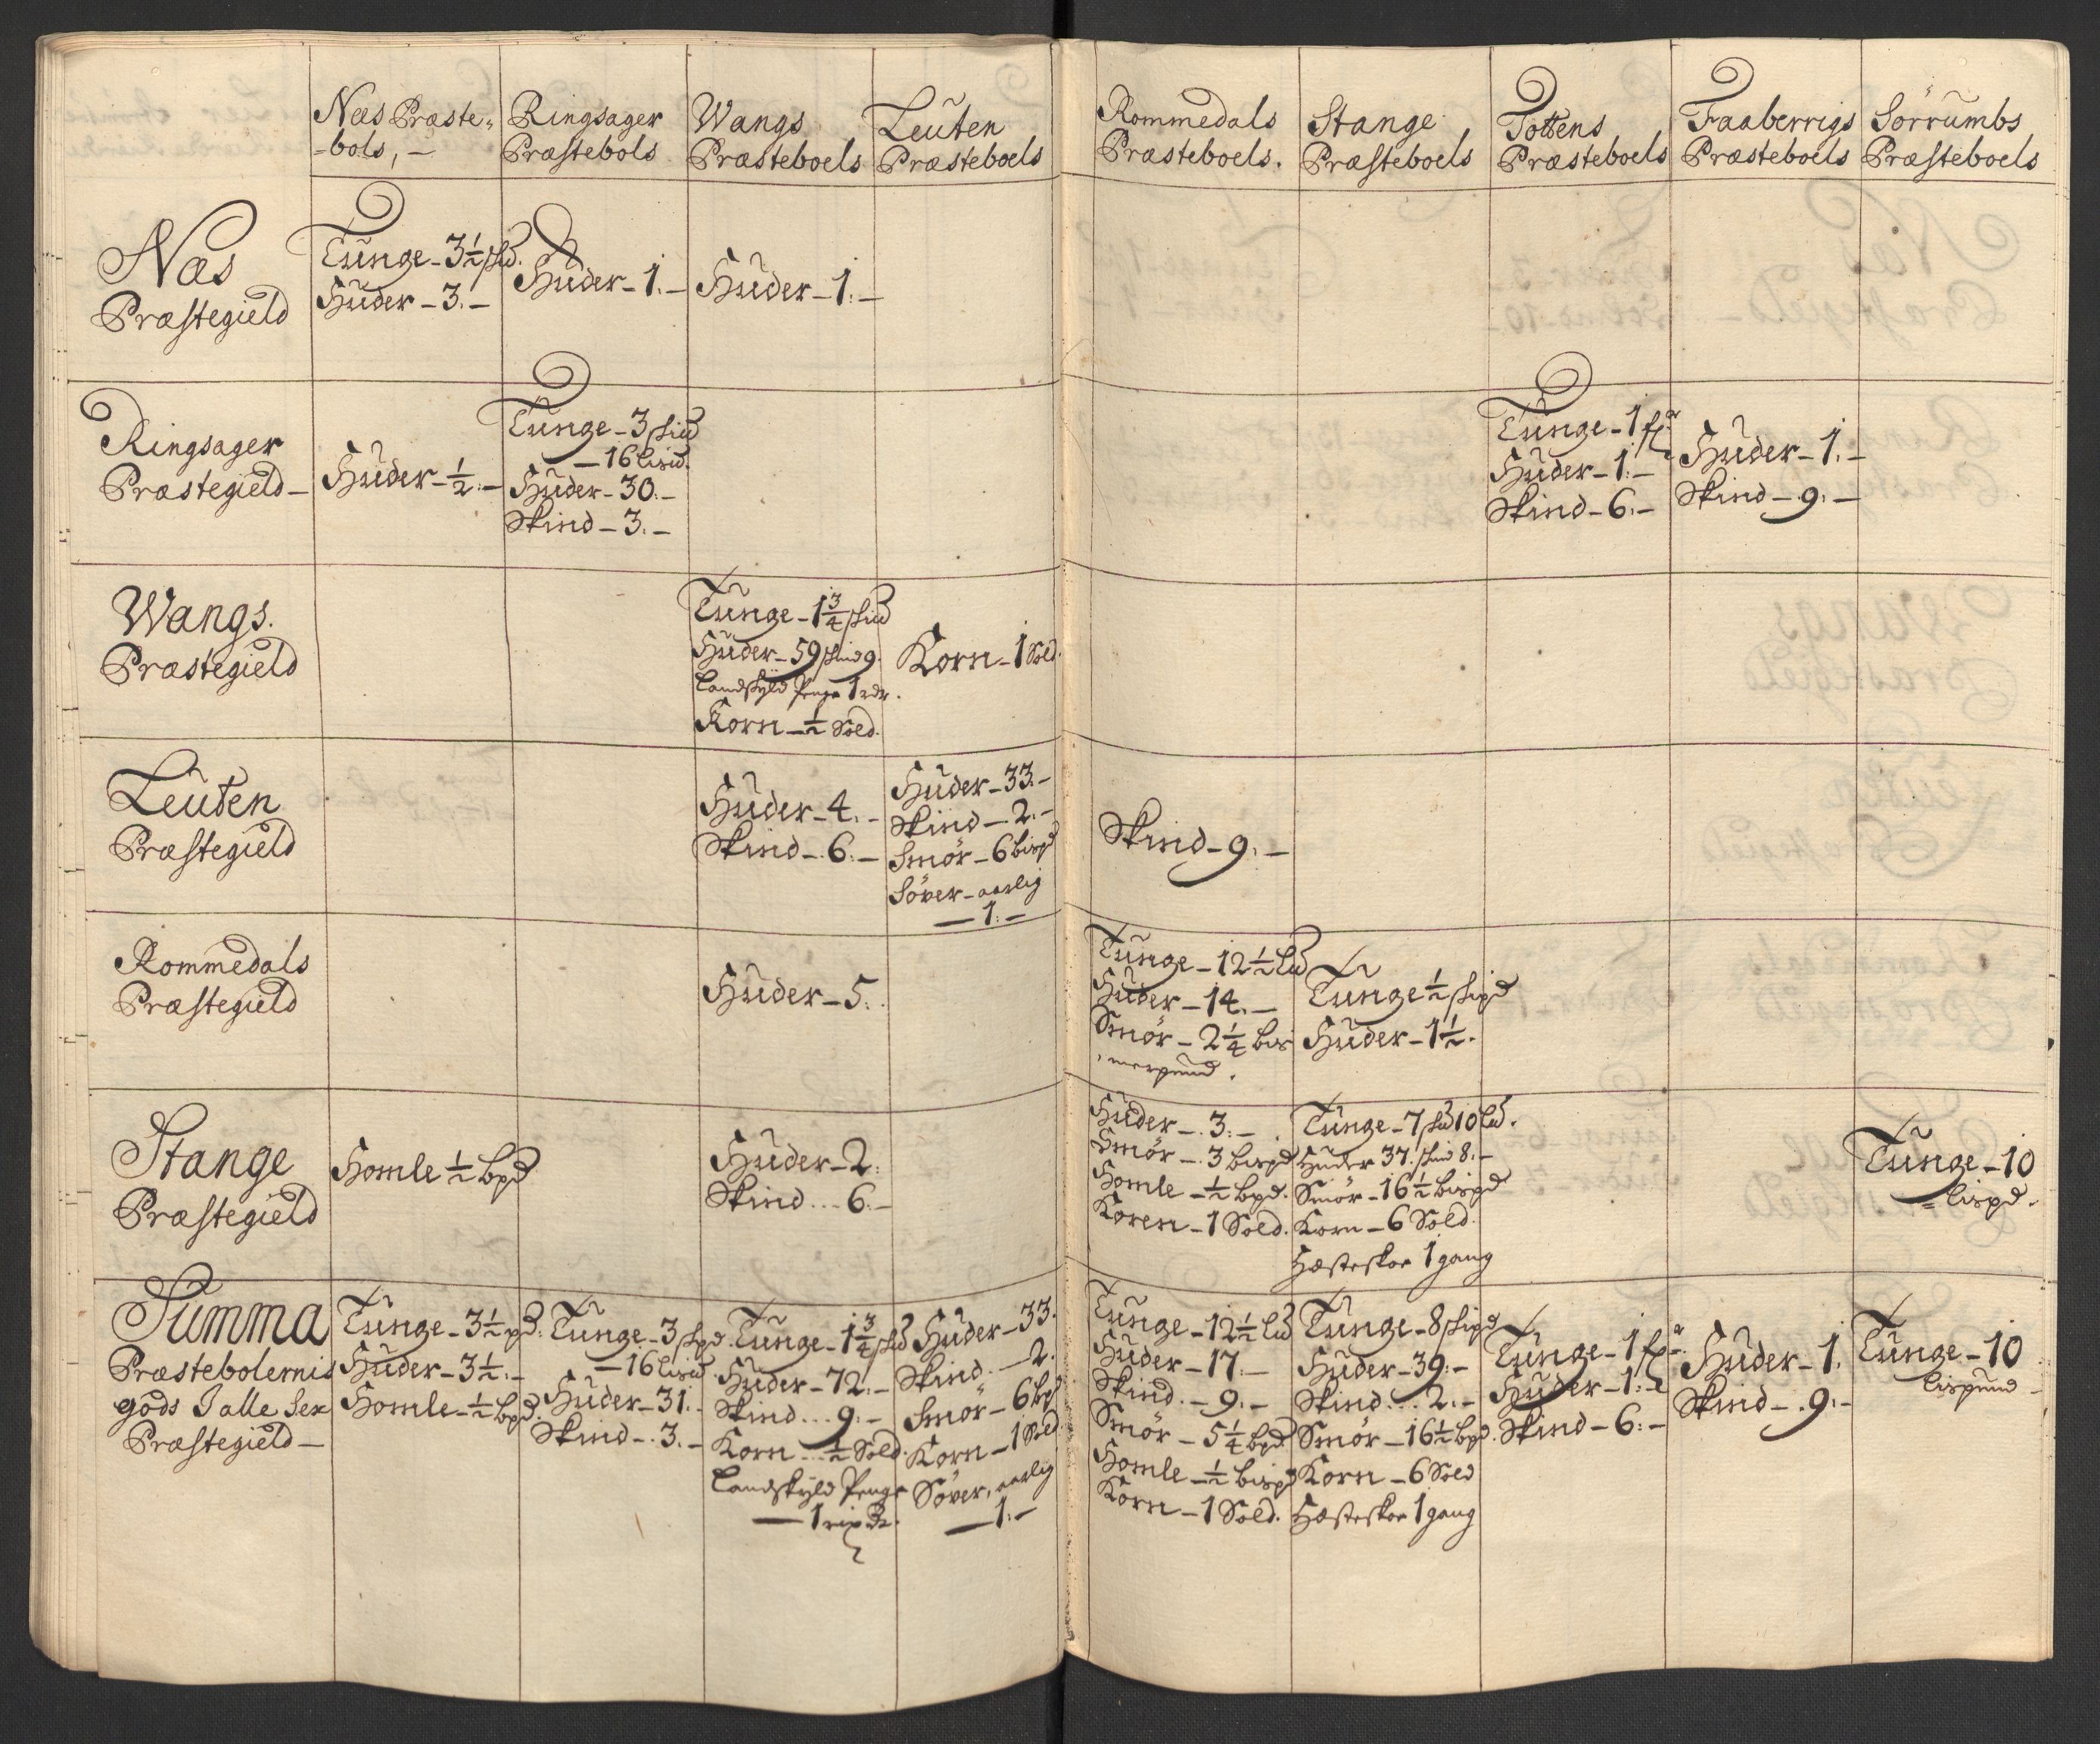 Næs Præste-
-bols, -
Ringsager
Præstebols
Wangs
Præsteboels
Leuten
Præsteboels
Rommedals
Præsteboels.
Stange
Præsteboels
Tottens
Præsteboels
Faaberrigs
Præsteboels
Sörrumbs
Præsteboels
Næs
Præstegield
Tunge - 3 1/2 skd.
Huder - 3. -
Huder - 1. -
Huder - 1. -
Ringsager
Præstegield -
Huder - 1/2. -
Tunge - 3 skd
- 16 lispd.
Huder - 30. -
Skind - 3. -
Tunge - 1 
Huder - 1. -
Skind - 6. -
Huder - 1. -
Skind - 9. -
Wangs.
Præstegield
Tunge - 1 3/4 skd
Huder - 59 skind 9.
Landskyld Penge 1 rdr.
Korn - 1/2 Sold.
Korn - 1 Sold.
Leuten
Præstegield
Huder - 4. -
Skind - 6. -
Huder - 33. -
Skind - 2. -
Smör - 6 bispd
Söver - aarlig
- 1. -
Skind - 9. -
Rommedals
Præstegield
Huder - 5.
Tunge - 12 1/2 Ld
Huder - 14. -
Smör - 2 1/4 bis-
merpund.
Tunge 1/2 skipd
Huder - 1 1/2.
Stange
Præstegield
Homle 1/2 bpd
Huder - 2.
Skind ... 6. -
Huder - 3. -
Smör - 3 bispd
Homle - 1/2 bpd.
Koren - 1 Sold.
Tunge - 7 skd 10 Ld.
Huder 37. skind 8. -
Smör - 16 1/2 bispd
Korn - 6 Sold.
Hæsteskoe 1 gang
Tunge - 10
lispd.
Summa
Præstebolernis
gods I alle Sex
Præstegield -
Tunge - 3 1/2 pd.
Huder - 3 1/2. -
Homle - 1/2 bpd.
Tunge - 3 skpd.
- 16 lispd.
Huder - 31. -
Skind - 3. -
Tunge - 1 3/4 skd
Huder - 72. -
Skind ... 9. -
Korn ... 1/2 Sold.
Landskyld Penge
- 1 rixdr.
Huder - 33.
Skind - 2.
Smör - 6 bpd
Korn - 1 Sold
Söver, aarlig
- 1. -
Tunge - 12 1/2 Ld
Huder - 17. -
Skind - 9. -
Smör - 5 1/4 bpd.
Homle - 1/2 bispd
Korn - 1 Sold.
Tunge - 8 skipd
Huder - 39. -
Skind ... 2. -
Smör - 16 1/2 bpd.
Korn - 6 Sold
Hæsteskoe 1 gang
Tunge - 1 
Huder - 1. -
Skind - 6. -
Huder - 1.
Skind - 9. -
Tunge - 10
lispund -